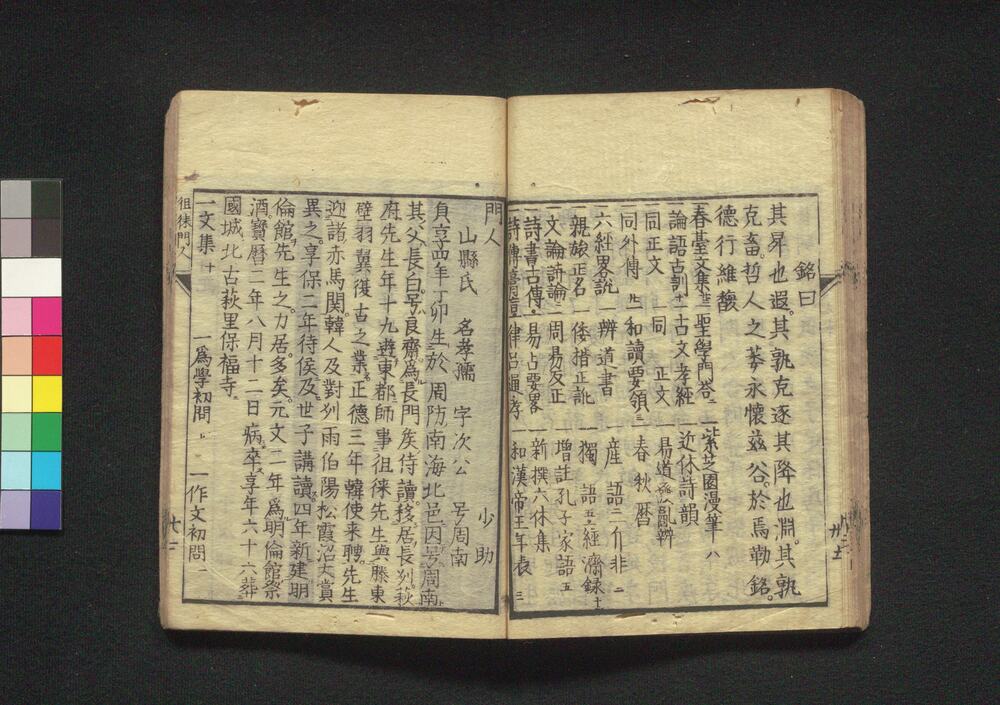 銘曰
其昇也遐其孰克逐其降也淵其孰
克畜哲人之萎永懷茲谷於焉勒銘
德行維馥
春臺文集 一聖學問答二 一紫芝園漫筆八
一論語古訓十 一古文孝經 一近体詩韻
一同正文 一同正文 一易道撥亂辨
一同外傳 一和讀要領三 一春秋曆
一六經畧說 一辨道書 一產語二 一介非二
一親族正名 一倭楷正訛 一獨語五 一經濟錄十
一文論詩論二 一周易反正 一增註孔子家語五
一詩書古傳 一易占要畧 一新撰六体集
一詩傳膏肓 一律呂通考 一和漢帝王年表三
門人 少助
山縣氏 名孝孺 字次公 号周南
貞享四年丁卯生於周防南海北邑因号周南
其父長白号良齋為長門矦侍讀移居長刕萩
府先生年十九遊東都師事徂徠先生與滕東
壁羽翼復古之業正德三年韓使来聘先生
迎諸赤馬関韓人及對刕雨伯陽松霞沼大賞
異之享保二年待侯及世子講讀四年新建明
倫館先生之力居多矣元文二年為明倫館祭
酒寶曆二年八月十二日病卒享年六十六葬
國城北古萩里保福寺
一文集十 一為學初問 一作文初問一
徂徠門人
七